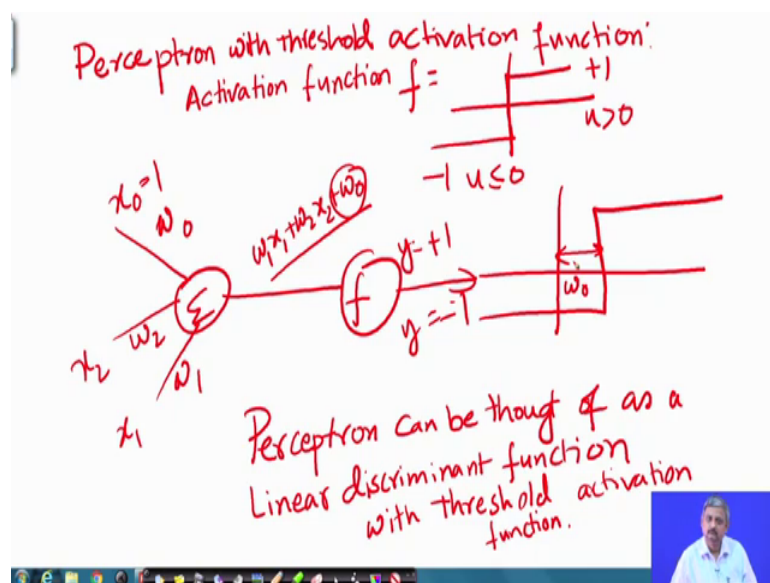 Perceptron with threshold activation function:
Activation function f =
+1
u>0
-1 u≤0
x₀=1
w₀
w₁x₁+w₂x₂+w₀
y=+1
f
Σ
w₀
y=-1
x₂
w₂
w₁
x₁
Perceptron can be thougt of as a
Linear discriminant function
with threshold activation
function.